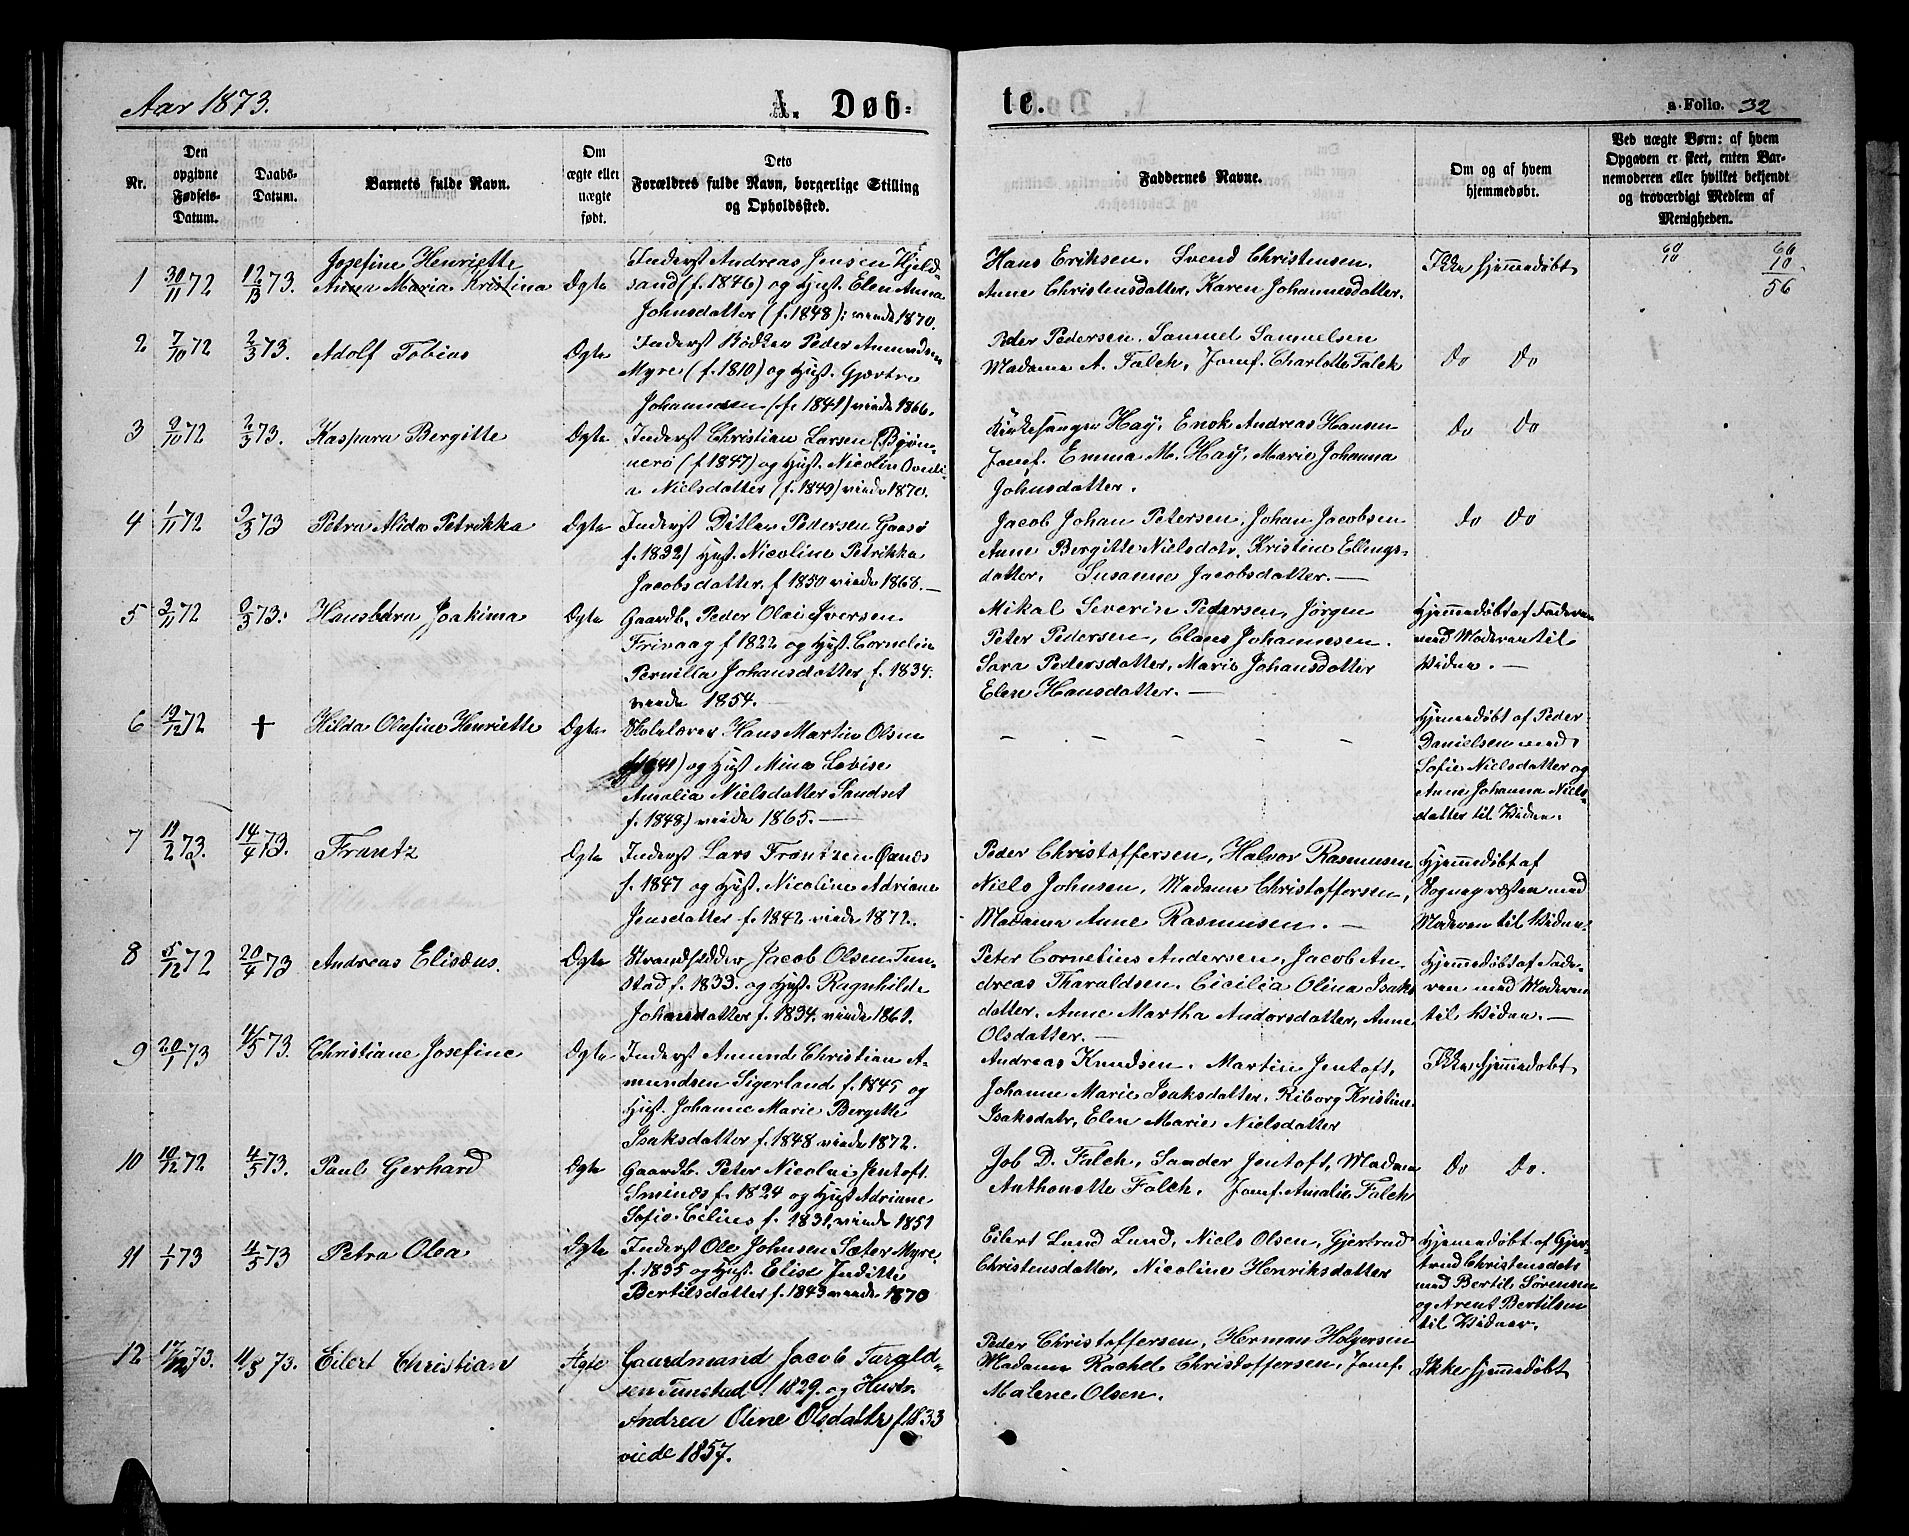 Aar 1873.
A. Døb-
te.
a. Folio. 32
Nr.
Den opgivne Fødsels-Datum.
Daabs-Datum.
Barnets fulde Navn.
Om ægte eller uægte født.
Dets Forældres fulde Navn, borgerlige Stilling og Opholdssted.
Faddernes Navne.
Om og af hvem hjemmedøbt.
Ved uægte Børn: af hvem Opgaven er skeet, enten Barnemoderen eller hvilket bekjendt og troværdigt Medlem af Menigheden.
1 30/11 72 12/13 73. Josefine Henriette
Anna Maria Kristina
Ægte
Inderst Andreas Jensen Hjeld-
sand (f. 1846) og Hust. Elen Anna
Johnsdatter (f. 1848) viede 1870.
Hans Eriksen. Svend Christensen.
Anne Christensdatter. Karen Johannesdatter.
Ikke hjemmedøbt
60
10
66
10
56
2 7/10 72 2/3 73. Adolf Tobias
Ægte
Inderst Bødker Peder Amundsen
Myre (f. 1810) og Hust. Gjertru
Johannesen (f. 1841) viede 1866.
Peder Pedersen. Samuel Samuelsen
Madame A. Falch, Jomf. Charlotte Falck
do do
3 9/10 72 2/3 73. Kaspara Bergitte
Ægte
Inderst Christian Larsen Bjørn-
nerø (f. 1847) og Hust. Nicolin
Nielsdatter (f. 1849) viede 1870.
Kirkesanger Hay, Enok Andreas Hansen
Jomf. Emma M. Hay, Marie Johanna
Johnsdatter.
do do
4 1/11 72 9/3 73 Petra Alida Petrikka
Ægte
Inderst Ditlev Pedersen Gaasø
f. 1832) Hust. Nicoline Petrikka
Jacobsdatter f 1850 viede 1868.
Jacob Johan Petersen, Johan Jacobsen
Anne Bergitte Nielsdatr, Kristine Ellings-
datter. Susanne Jacobsdatter.—
do do
5 3/11 72 9/3 73. Hansbarn Joakima
Ægte
Gaardb. Peder Olai Iversen
Frivaag f 1822 og Hust. Cornelia
Pernilla Johansdatter, f. 1834.
viede 1854.
Mikal Severin Pedersen, Jørgen
Peter Pedersen, Claus Johannesen.
Sara Pedersdatter, Marie Johansdatter
Elen Hansdatter.—
Hjemmedøbt af Faderen
med Moderen til
Vidne.—
6 19/12 72 + Hilda Olufine Henriette
Ægte
Skolelærer Hans Martin Olsen
f 1841) og Hust Mina Lovise
Amalia Nielsdatter Sandset
f. 1848) viede 1865.—
– – – – –
Hjemmedøbt af Peder
Danielsen med
Sofie Nielsdatter og
Anne Johanna Niels-
datter til Vidne.
7 11/2 73. 14/4 73. Frantz
Ægte
Inderst Lars Frantzen Øsnes
f. 1847 og Hust. Nicoline Adriane
Jensdatter f. 1842 viede 1872.
Peder Christoffersen, Halvor Rasmusen
Niels Johnsen, Madame Christoffersen,
Madame Anne Rasmusen.—
Hjemmedøbt af
Sognepræsten med
Moderen til Vidne.
8 5/12 72 20/4 73 Andreas Elisæus.
Ægte
Strandsidder Jacob Olsen Tun-
stad f. 1833. og Hust. Ragnhilde
Johansdatter f. 1834. viede 1861.
Peter Cornelius Andersen, Jacob An-
dreas Tharaldsen. Cicilia Olina Isaks
datter. Anne Martha Andorsdatter, Anne
Olsdatter.—
Hjemmedøbt af Fade-
ren med Moderen
til Vidne.—
9 20/1 73 4/5 73. Christiane Josefine
Ægte
Inderst Amund Christian A-
mundsen Sigerland f. 1845 og
Hust. Johanne Marie Bergitte
Isaksdatter f. 1848 viede 1872.
Andreas Knudsen. Martin Jentoft,
Johanne Marie Isaksdatter, Riborg Kristine
Isaksdatr, Elen Marie Nielsdatter
Ikke hjemmedøbt
10 10/12 72 4/5 73. Paul Gerhard
Ægte
Gaardb. Peter Nicolai Jentoft.
Smines f. 1824 og Hust Adriane
Sofie f. 1831, viede 1851
Job D. Falch, Sander Jentoft, Madam
Anthonette Falch. Jomf. Amalie Falch
do do.
11 1/1 73 4/5 73 Petra Olea
Ægte
Inderst Ole Johnsen Sæter Myre
f. 1835 og Hust. Elise Juditte
Bertilsdatter f. 1843 viede 1870
Eilert Lund Lund, Niels Olsen, Gjertrud
Christensdatter, Nicoline Henriksdatter
Hjemmedøbt af Gjer-
trud Christensdatr
med Bertil Sørensen
og Arent Bertilsen
til Vidner.
12 17/12 73. 11/5 73. Eilert Christian
Ægte
Gaardmand Jacob Tarald-
sen Tunstad f 1829. og Hustr.
Andrea Oline Olsdattr f. 1833
viede 1857.
Peder Christoffersen, Herman Holgersen
Madame Rachel Christoffersen, Jomf.
Malene Olsen.
Ikke hjemmedøbt